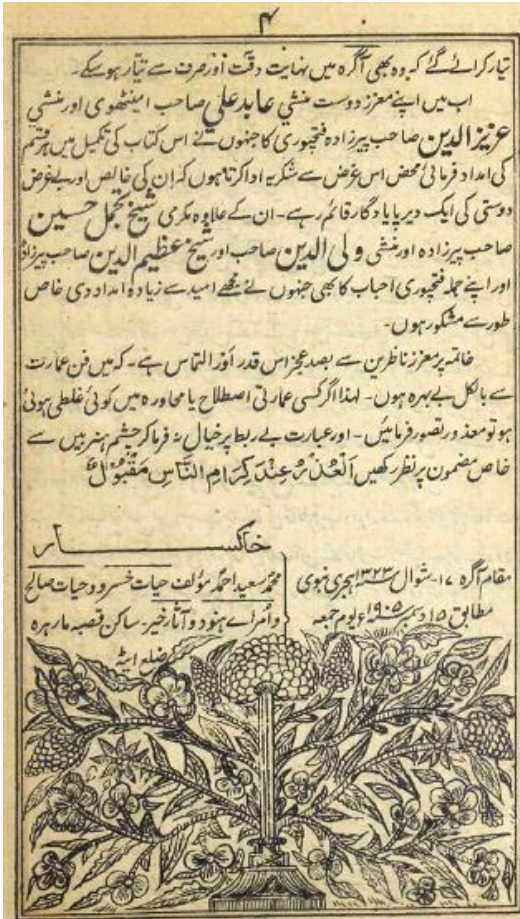 ۴
تیار کرائے گئے کہ وہ بھی آگرہ میں نہایت دقت اور صرف سے تیار ہو سکے۔
اب میں اپنے معزز دوست منشی عابد علی صاحب امیٹھوی اور منشی
عزیز الدین صاحب پیرزادہ فتحپوری کا جنہوں نے اس کتاب کی تکمیل میں ہر قسم
کی امداد فرمائی محض اس غرض سے شکریہ ادا کرتا ہوں کہ ان کی خالص اور بے غرض
دوستی کی ایک دیرپا یادگار قائم رہے۔ ان کے علاوہ مکرمی شیخ تجمل حسین
صاحب پیرزادہ اور منشی ولی الدین صاحب اور شیخ عظیم الدین صاحب پیرزادہ
اور اپنے جملہ فتحپوری احباب کا بھی جنہوں نے مجھے امید سے زیادہ امداد دی خاص
طور سے مشکور ہوں۔
خاتمہ پر معزز ناظرین سے بصد عجز اس قدر اور التماس ہے۔ کہ میں فن عمارت
سے بالکل بے بہرہ ہوں۔ لہذا اگر کسی عمارتی اصطلاح یا محاورہ میں کوئی غلطی ہوئی
ہو تو معذور تصور فرمائیں۔ اور عبارت بے ربط پر خیال نہ فرما کر چشم ہنر بیں سے
خاص مضمون پر نظر رکھیں اَلْعُذْرُ عِنْدَ کِرَامِ النَّاسِ مَقْبُوْلٌ
خاکسار
مقام آگرہ ۱۷۔ شوال ۱۳۲۳ ہجری نبوی
مطابق ۱۵ دسمبر ۱۹۰۵ء یوم جمعہ
محمد سعید احمد مؤلف حیات خسرو و حیات صالح
و امراے ہنود و آثار خیر۔ ساکن قصبہ مارہرہ
ضلع ایٹہ